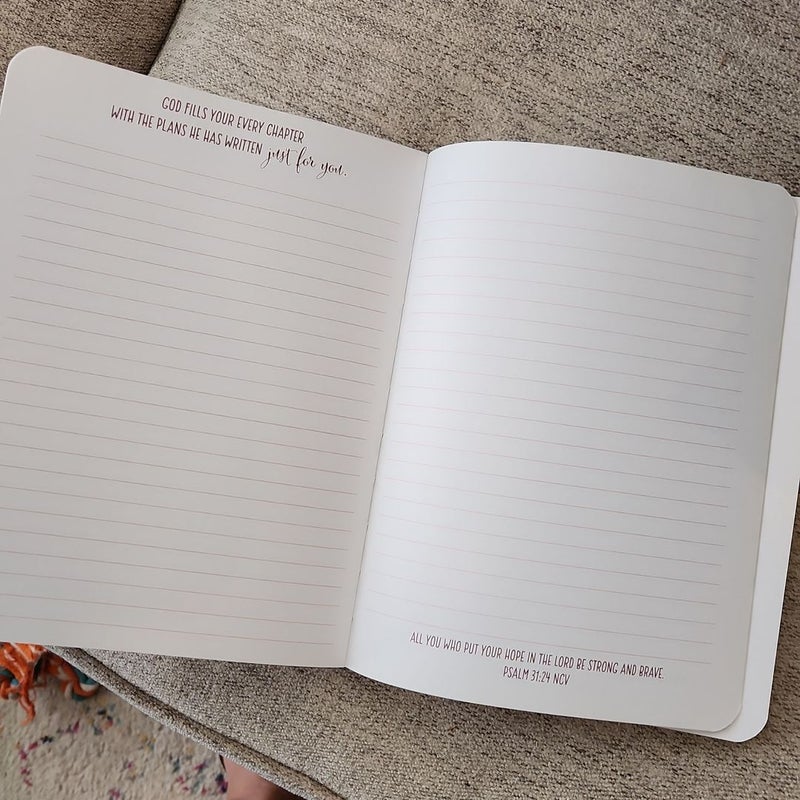 GOD FILLS YOUR EVERY CHAPTER
WITH THE PLANS HE HAS WRITTEN just for you.
ALL YOU WHO PUT YOUR HOPE IN THE LORD BE STRONG AND BRAVE.
PSALM 31:24 NCV